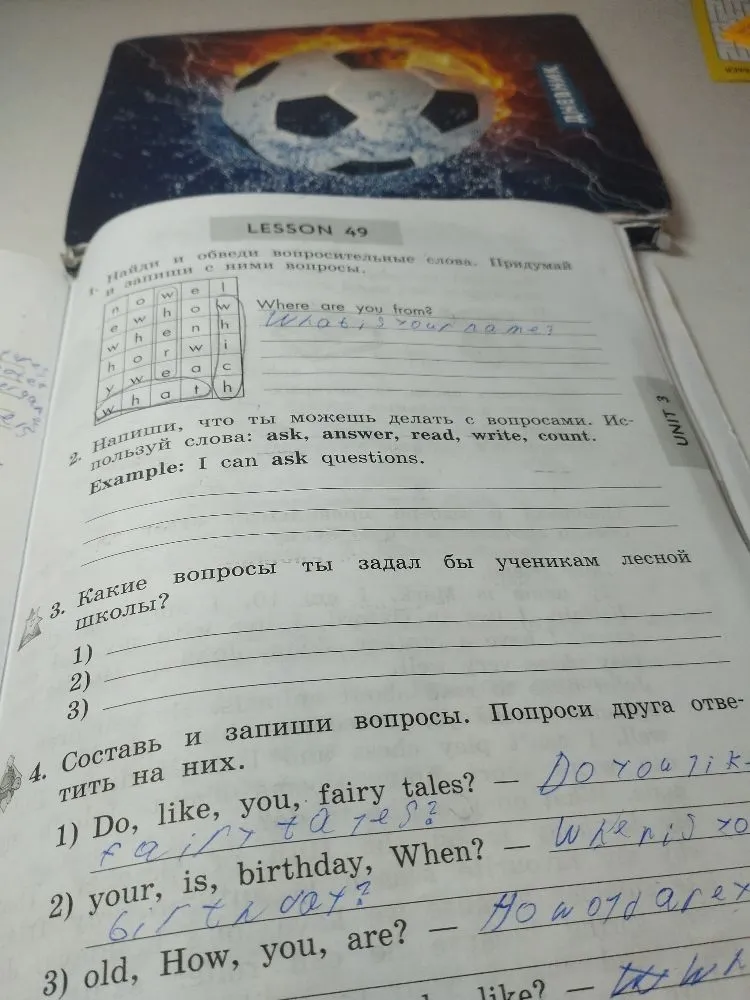 ДНЕВНИК
LESSON 49
1. Найди и обведи вопросительные слова. Придумай
и запиши с ними вопросы.
n o w e l
e w h o w
w h e n h
h o r w i
y w e a c
w h a t h
Where are you from?
What is your name?
2. Напиши, что ты можешь делать с вопросами. Ис-
пользуй слова: ask, answer, read, write, count.
Example: I can ask questions.
UNIT 3
3. Какие вопросы ты задал бы ученикам лесной
школы?
1)
2)
3)
4. Составь и запиши вопросы. Попроси друга отве-
тить на них.
1) Do, like, you, fairy tales? — Do you lik
fairy tales?
2) your, is, birthday, When? — When is yo
birthday?
3) old, How, you, are? — How old are y
like? — Wh